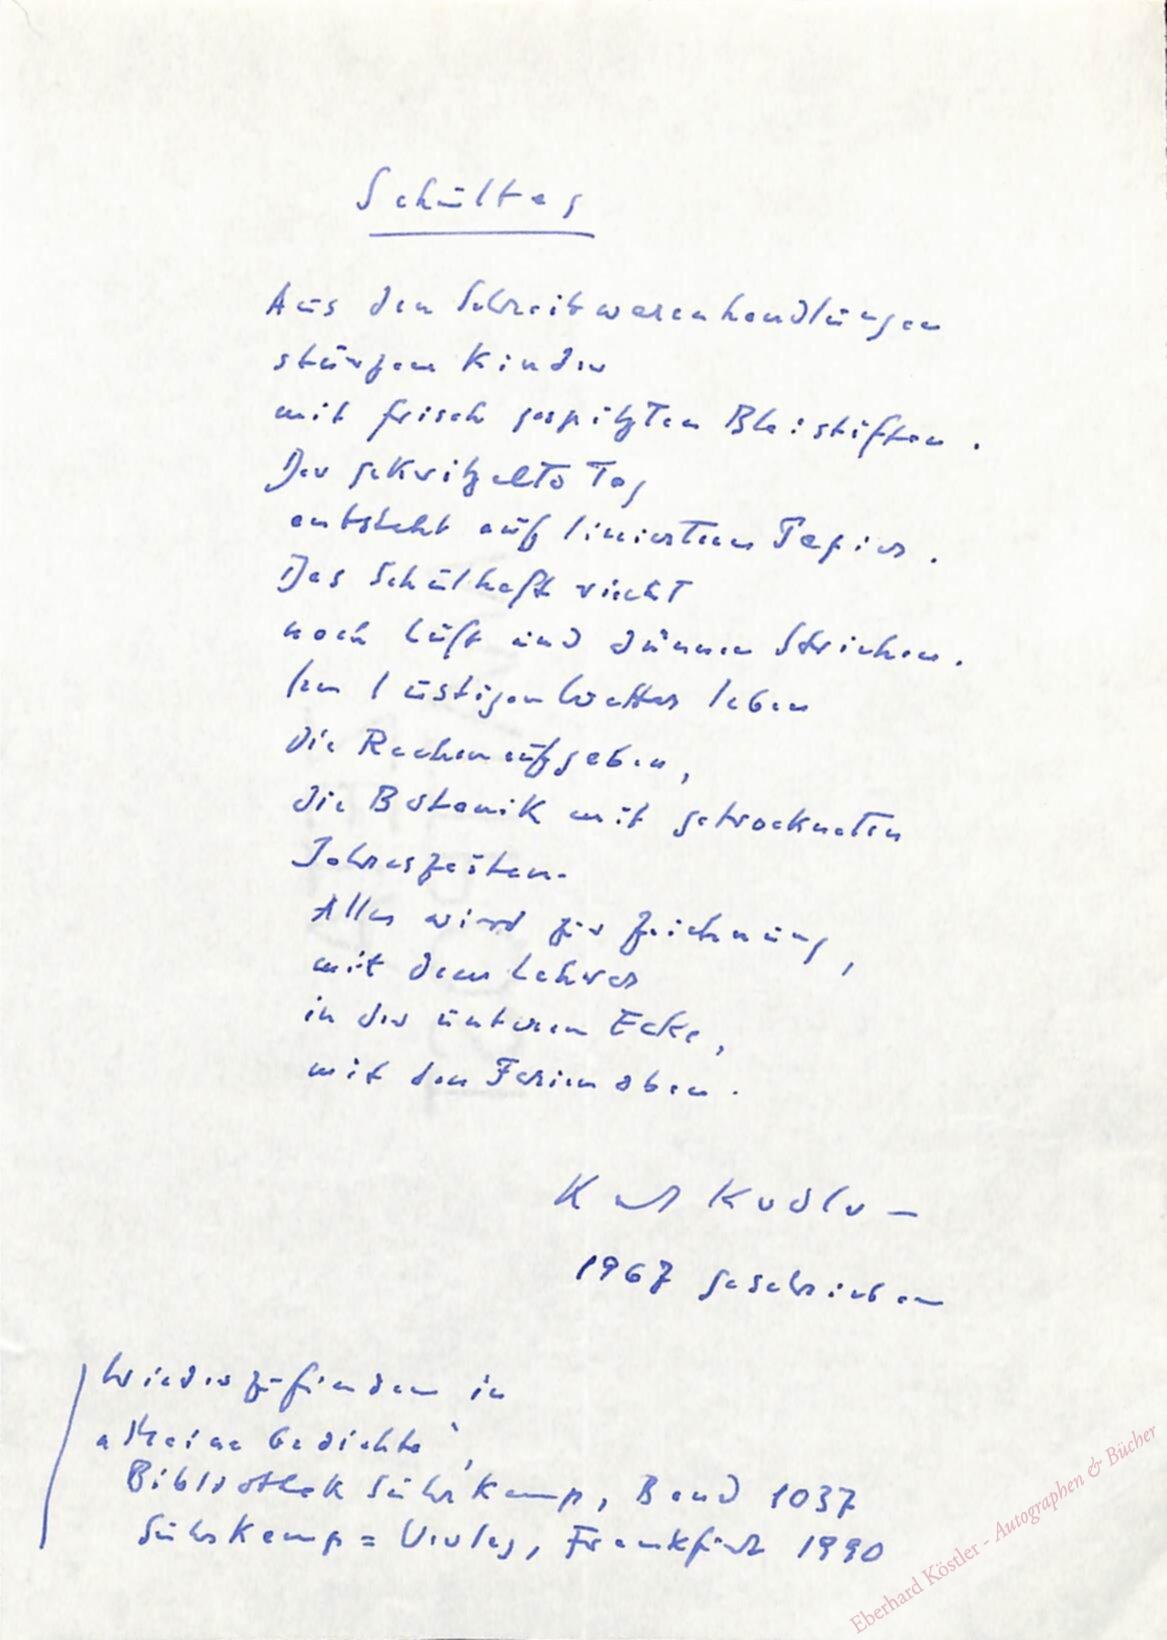 Schultag
Aus den Schreibwarenhandlungen
stürzen Kinder
mit frisch gespitzten Bleistiften.
Der gekritzelte Tag
entsteht auf liniertem Papier.
Das Schulheft riecht
nach Luft und dünnen Strichen.
Im lustigen Wetter leben
die Rechenaufgaben,
die Botanik mit getrockneten
Jahreszeiten.
Alles wird zur Zeichnung,
mit dem Lehrer
in der unteren Ecke,
mit den Ferien oben.
Karl Krolow
1967 geschrieben
Wiederzufinden in
"Meine Gedichte",
Bibliothek Suhrkamp, Band 1037
Suhrkamp=Verlag, Frankfurt 1990
Eberhard Köstler - Autographen & Bücher